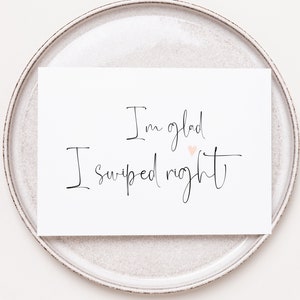 I'm glad
I swiped right